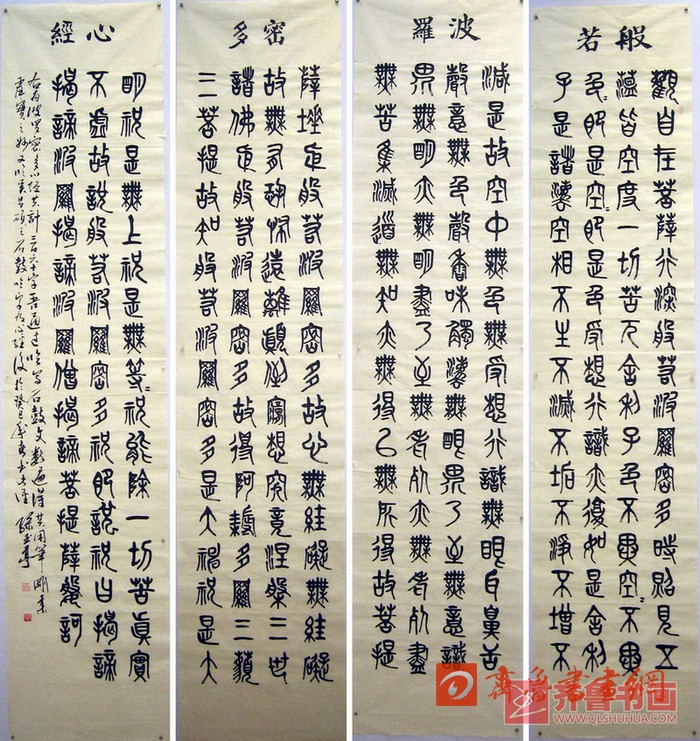 般若
觀自在菩薩行深般若波羅密多時照見五
蘊皆空度一切苦厄舍利子色不異空=不異
色=即是空=即是色受想行識亦復如是舍利
子是諸法空相不生不滅不垢不淨不增不
波羅
減是故空中無色無受想行識無眼耳鼻舌
意無色聲香味觸法無眼界乃至無意識
界無明亦無明盡乃至無老死亦無老死盡
無苦集滅道無知亦無得以無所得故菩提
密多
薩埵依般若波羅密多故心無罣礙無罣礙
故無有恐怖遠離顛倒夢想究竟涅槃三世
諸佛依般若波羅密多故得阿耨多羅三藐
三菩提故知般若波羅密多是大神咒是大
心經
明咒是無上咒是無等=咒能除一切苦真實
不虛故說般若波羅密多咒即說咒曰揭諦
揭諦波羅揭諦波羅僧揭諦菩提薩婆訶
右為波羅密多心經共計二百六十字吾通過寫石鼓文數遍得其用筆剛柔
虛實之妙
齊魯書畫網
齐鲁书画
WWW.QLSHUHUA.COM